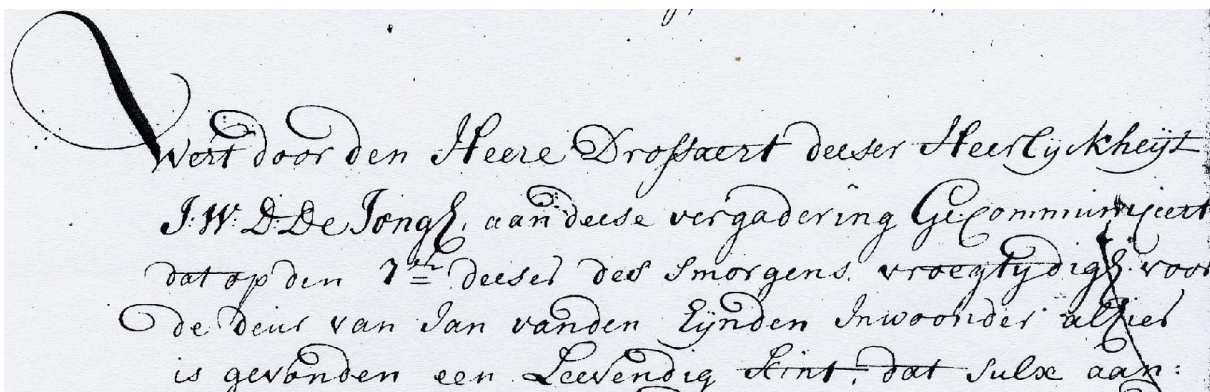 Wert door den Heere Drossaert deeser Heerlyckheyt
J. W. D. De Jongh, aan deese vergadering Gecommuniceert
dat op den 7en deeser des smorgens vroegtydigh voor
de deur van Jan vanden Eijnden Inwoonder alhier
is gevonden een Leevendig kint, dat sulx aan: